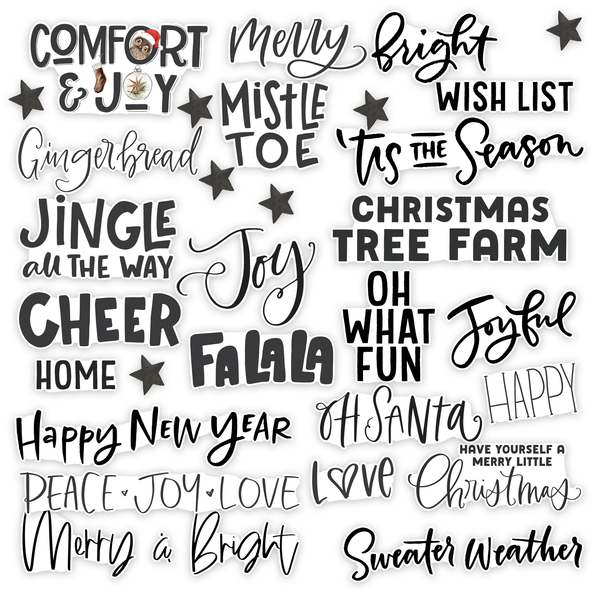 COMFORT
& JOY
Merry
bright
WISH LIST
MiSTLE
TOE
Gingerbread
'tis THE Season
JiNGLE
all THE WAY
Joy
CHRISTMAS
TREE FARM
CHEER
HOME
FALALA
OH
WHAT
FUN
Joyful
HAPPY
Happy New Year
OH SANta
HAVE YOURSELF A
MERRY LITTLE
Christmas
PEACE • JOY • LOVE
LOVE
Merry & Bright
Sweater Weather